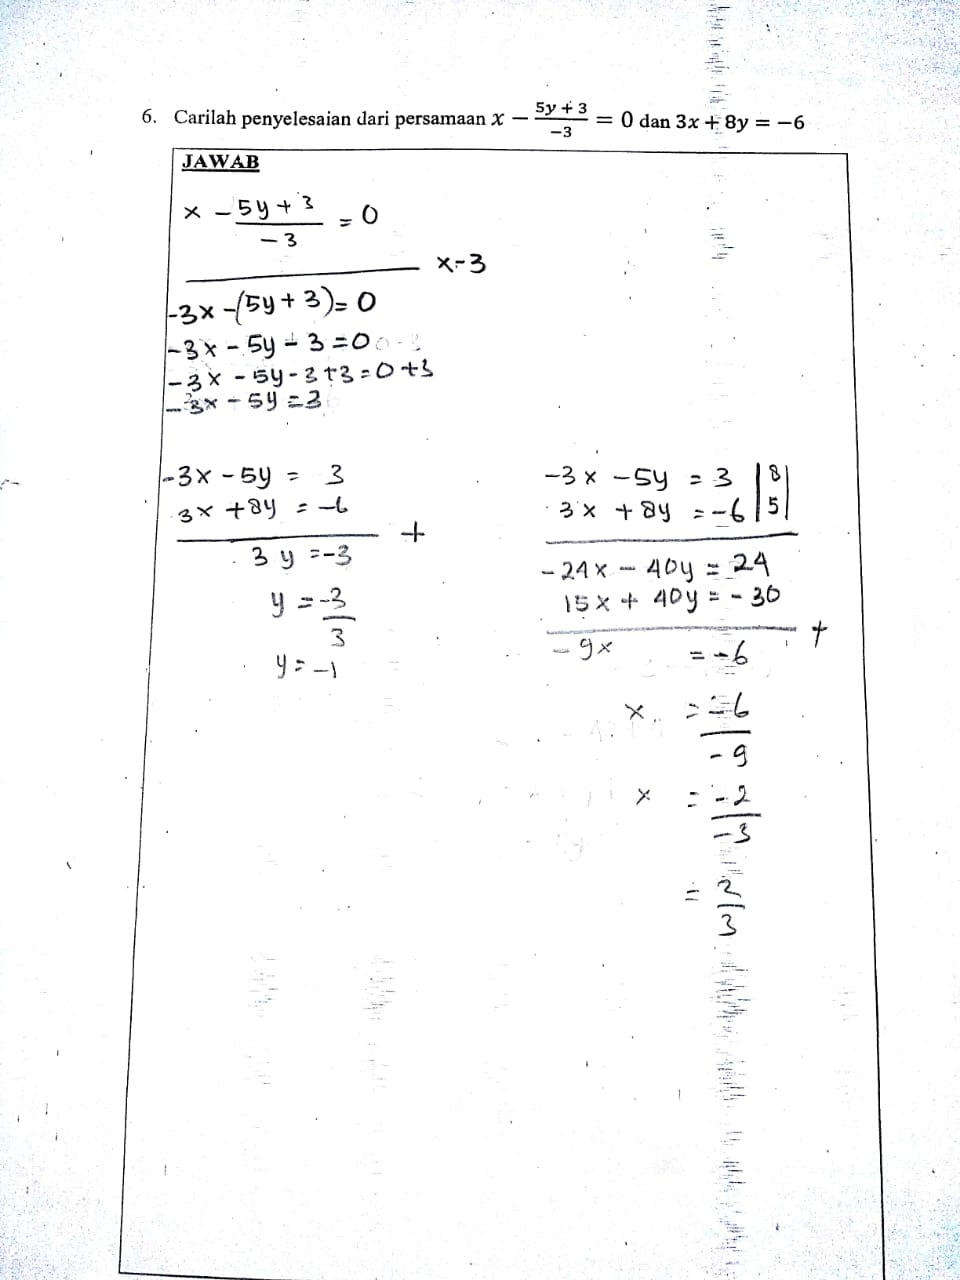 6. Carilah penyelesaian dari persamaan x − (5y + 3)/(−3) = 0 dan 3x + 8y = −6
JAWAB
x − (5y + 3)/(−3) = 0
x-3
-3x -(5y + 3) = 0
-3x - 5y - 3 = 0
-3x - 5y - 3 + 3 = 0 + 3
-3x - 5y = 3
-3x - 5y = 3
3x + 8y = -6
+
3y = -3
y = -3/3
y = -1
-3x - 5y = 3 | 8 |
3x + 8y = -6 | 5 |
-24x - 40y = 24
15x + 40y = -30
+
-9x = -6
x = -6/-9
x = -2/-3
= 2/3